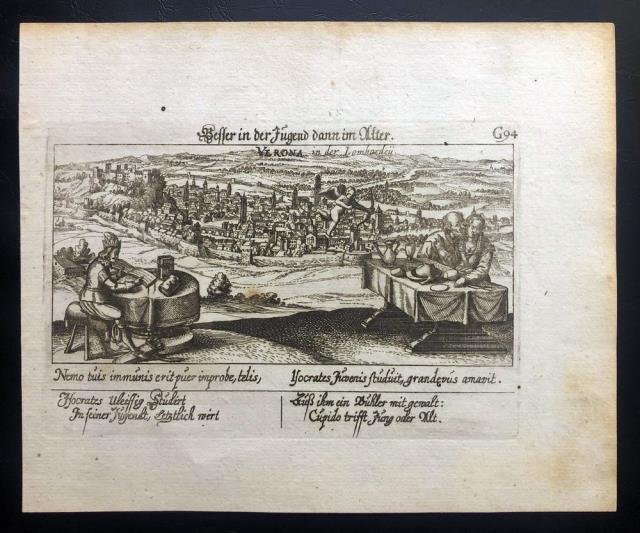 Besser in der Jugend dann im Alter.
G94
VERONA in der Lombardeÿ
Nemo tuis immunis erit puer improbe, telis,
Ysocrates Juvenis studuit, grandęvus amavit.
Isocrates vleissig Studirt
In seiner Jugendt, Letztlich wirt
Auß ihm ein Buhler mit gewalt:
Cupido trifft Jung oder Alt.